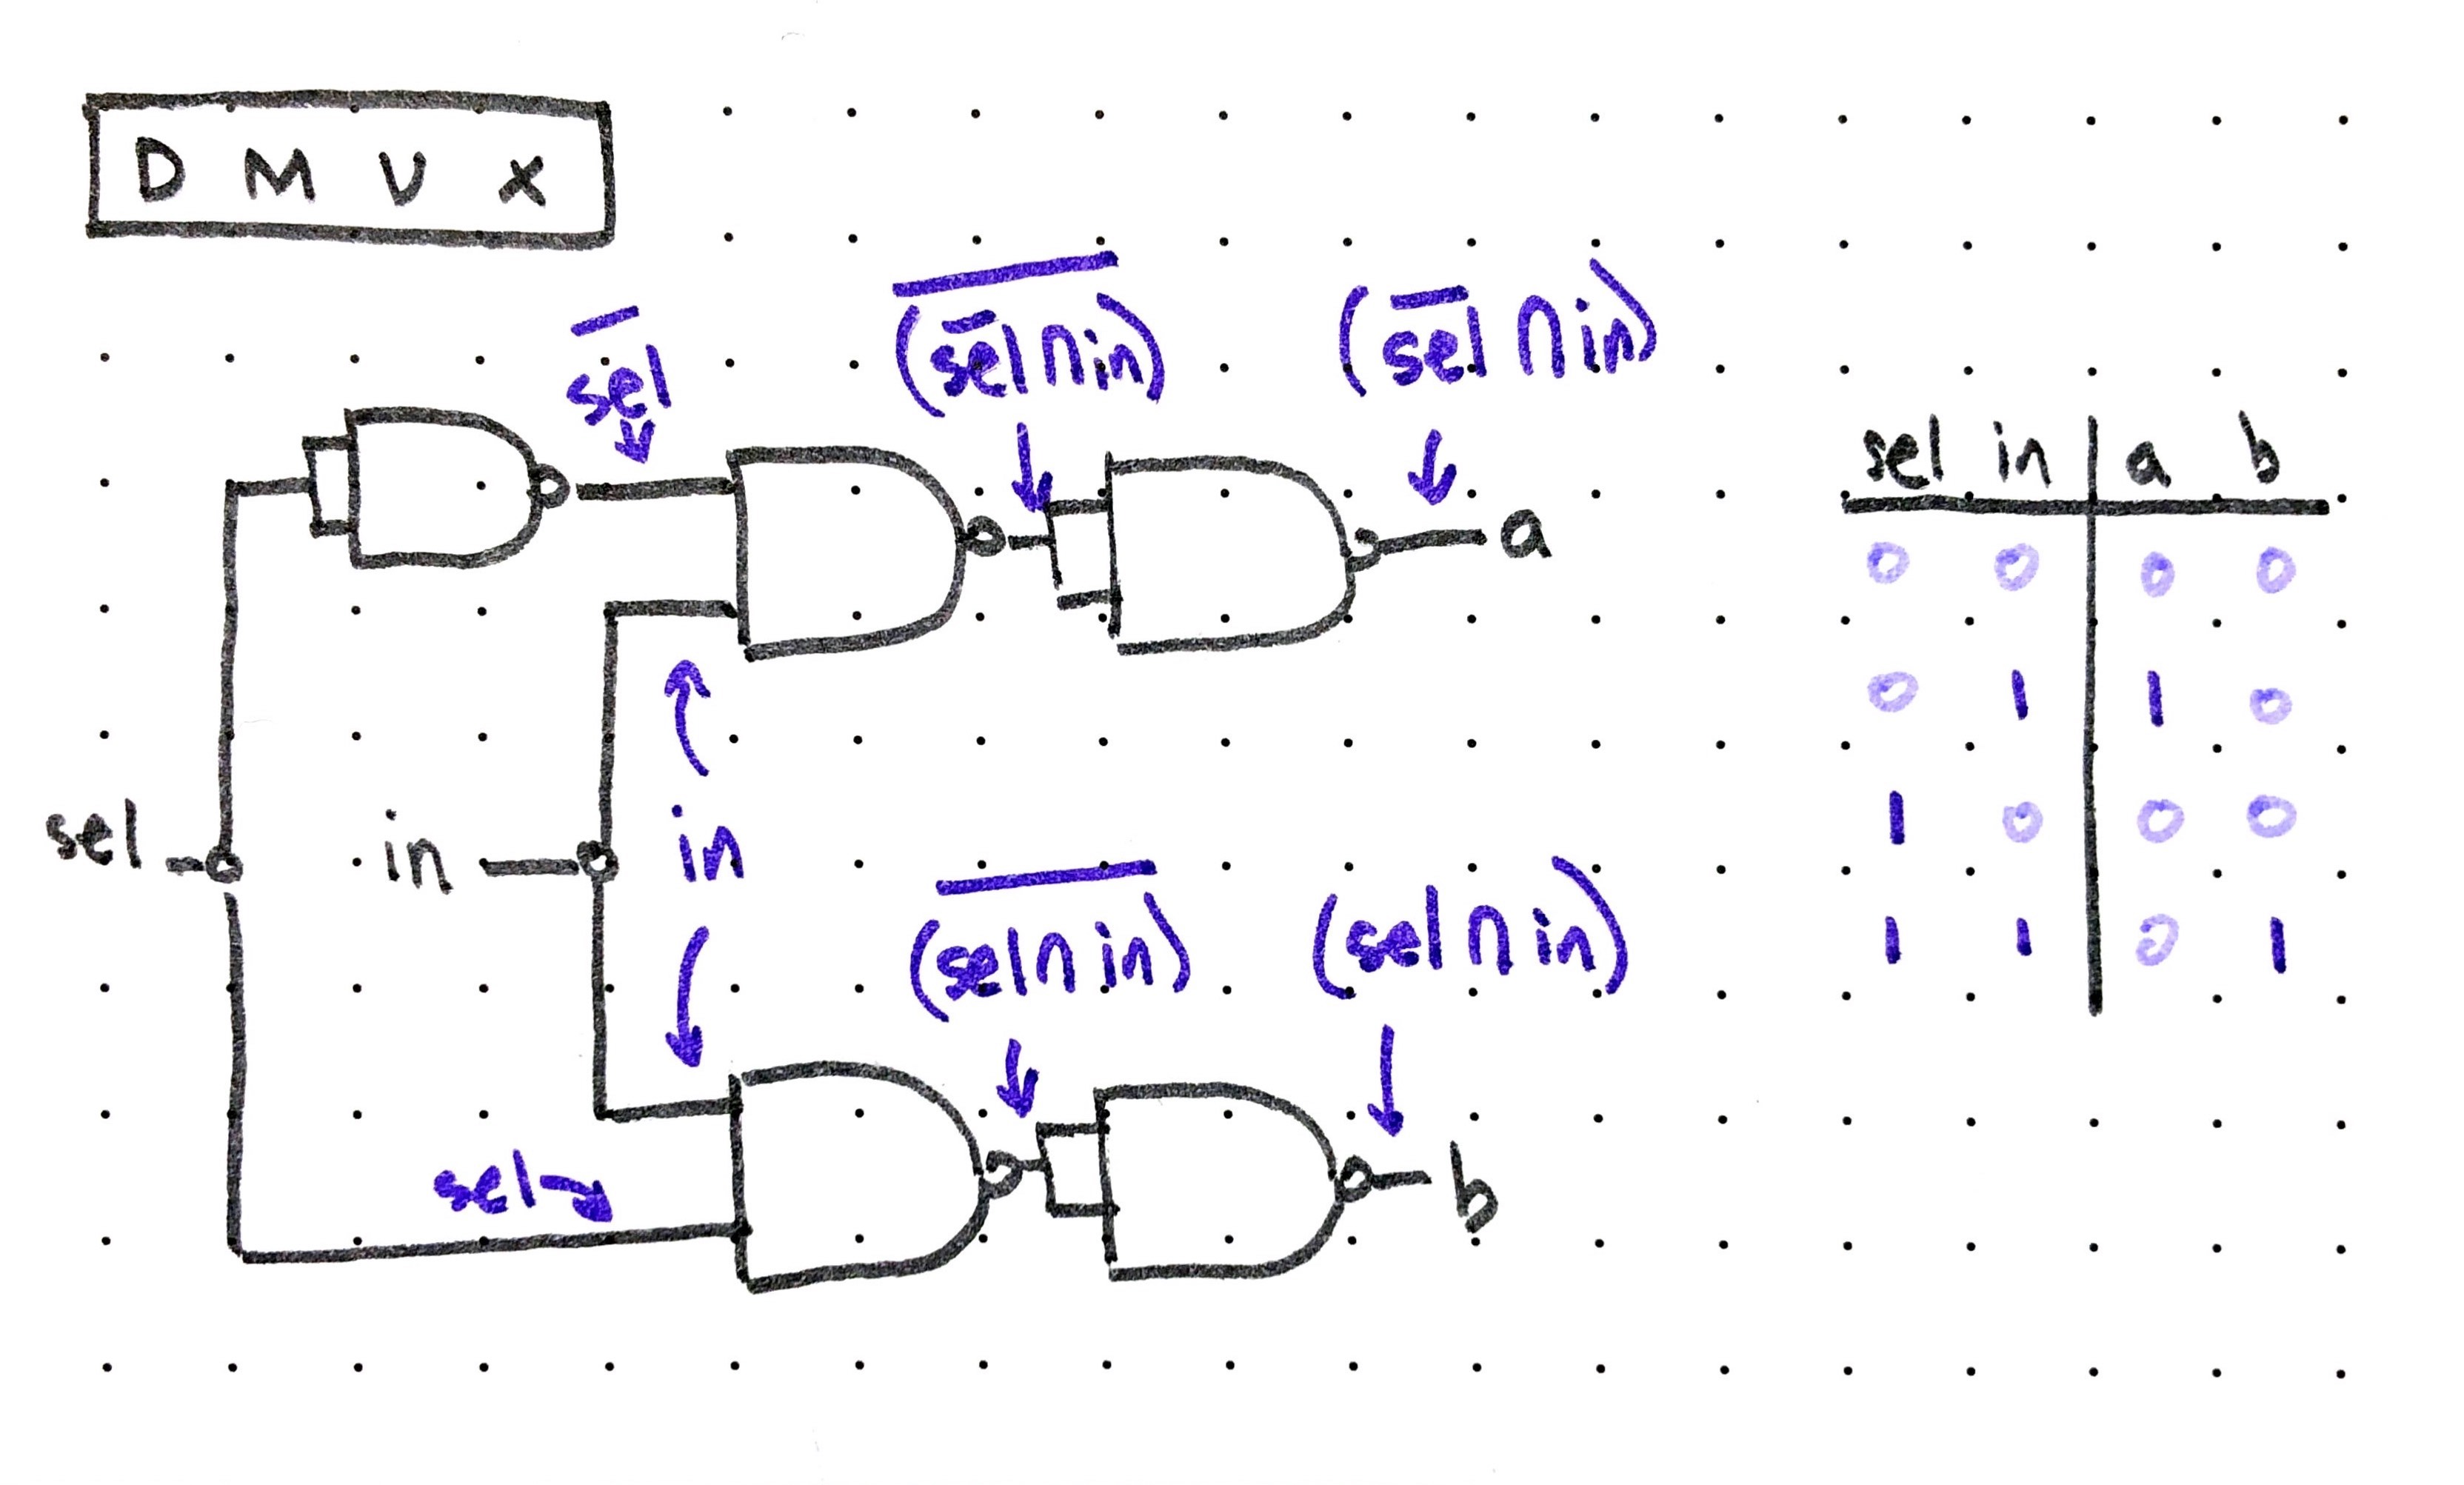 D M U X
s̅e̅l̅
(s̅e̅l̅ ∩ in)̅
(s̅e̅l̅ ∩ in)
a
sel
in
in
(sel ∩ in)̅
(sel ∩ in)
sel
b
sel in | a b
0 0 | 0 0
0 1 | 1 0
1 0 | 0 0
1 1 | 0 1